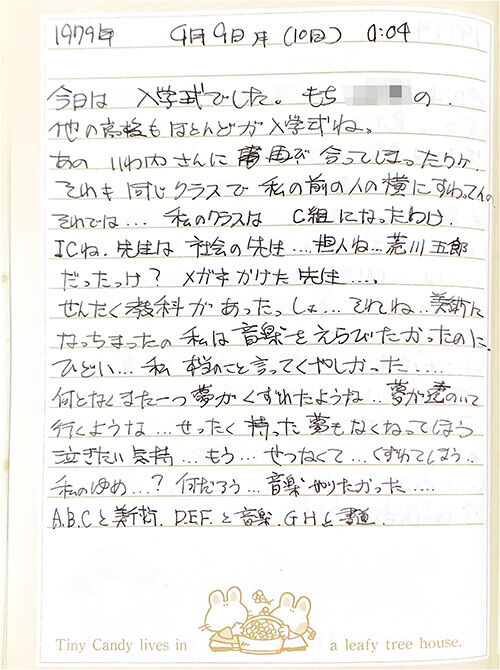 1979年 4月9日 月 (10日) 0:04
今日は 入学式でした。もち の.
他の高校もほとんどが入学式ね。
あの いわ内さんに 会ってしまったらケ.
それも 同じクラスで 私の前の人の横にすわってんの.
それでは... 私のクラスは C組になったわけ.
1Cね. 先生は 社会の先生....担人ね...荒川五郎
だったっけ? メガネかけた先生....、
せんたく教科があったっしょ...それでね..美術に
なっちまったの私は音楽をえらびたかったのに、
ひどい...私 本当のこと言ってくやしかった....
何となくまた一つ夢がくずれたような..夢が遠のいて
行くような...せったく持った夢もなくなってしまう
泣きたい気持...もう...せつなくて...くずれてしまう..
私のゆめ...? 何だろう...音楽やりたかった....
A.B.Cと美術. D.E.F.と音楽. G.Hと書道.
Tiny Candy lives in a leafy tree house.